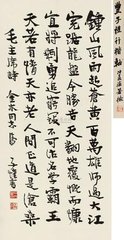 豐子愷行楷軸
鍾山風雨起蒼黃百萬雄師過大江
虎踞龍盤今勝昔天翻地覆慨而慷
宜將剩勇追窮寇不可沽名學霸王
天若有情天亦老人間正道是滄桑
毛主席詩 子愷書